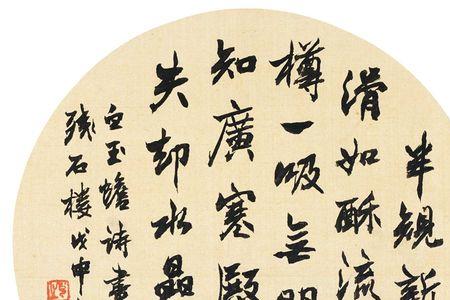 半規新
滑如酥流
樽一吸無
知廣寒殿
失却水晶
白玉蟾诗書
石樓戊申